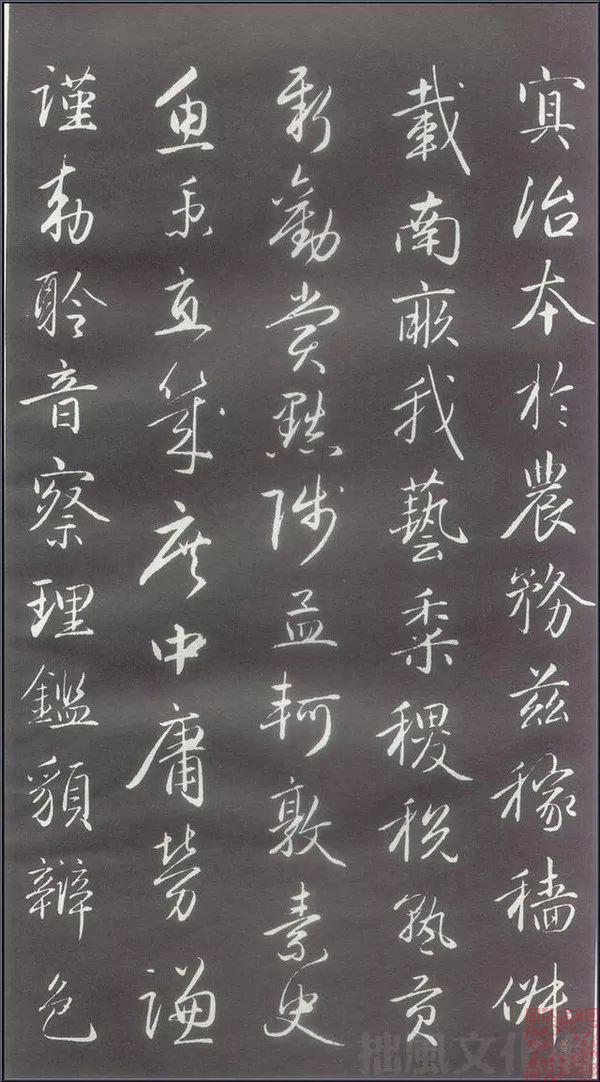 冥治本於農務茲稼穡俶
載南畝我藝黍稷稅熟貢
新勸賞黜陟孟軻敦素史
魚秉直幾庶中庸勞謙
謹勅聆音察理鑑貌辯色
拙風文化